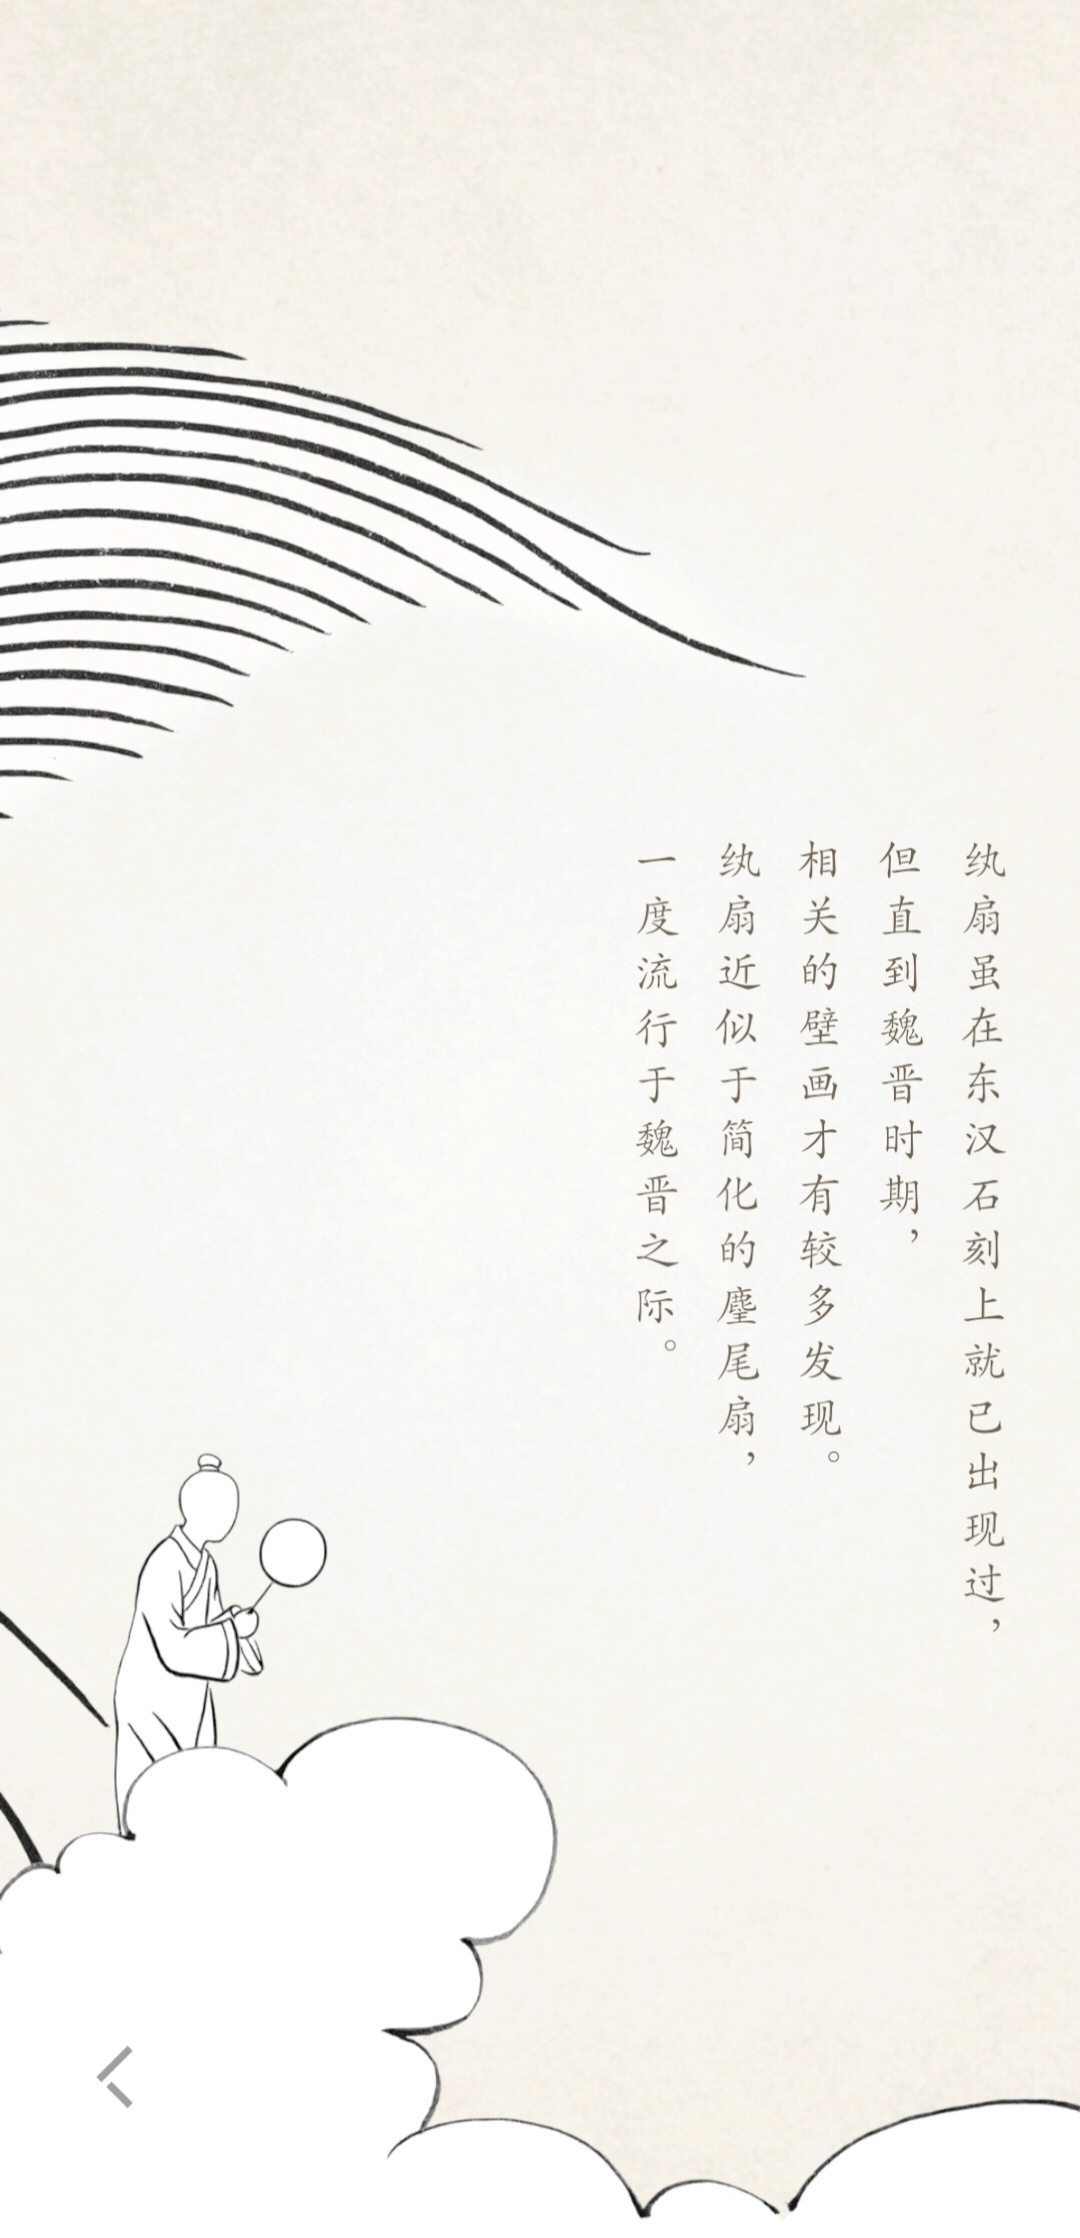 纨扇虽在东汉石刻上就已出现过，
但直到魏晋时期，
相关的壁画才有较多发现。
纨扇近似于简化的麈尾扇，
一度流行于魏晋之际。